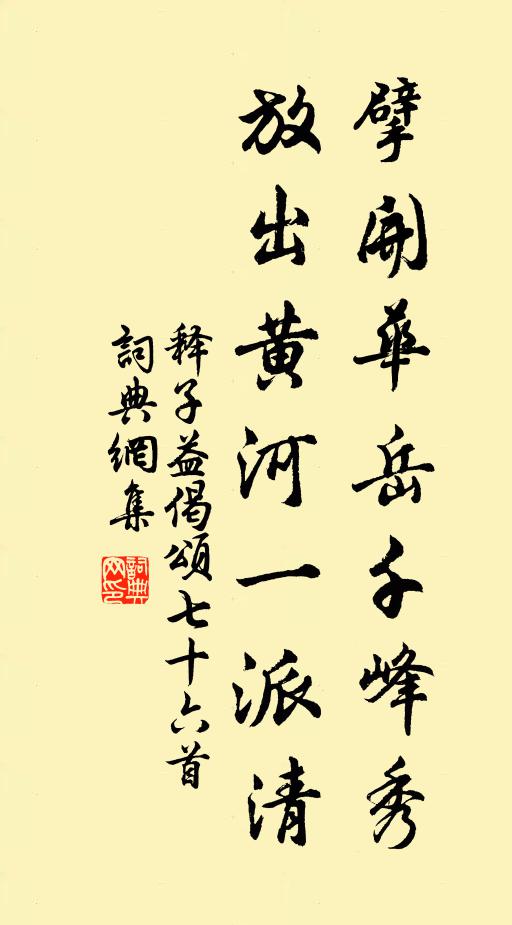 擘開華岳千峰秀
放出黃河一派清
释子益偈頌七十六首
詞典網集
詞典
网印